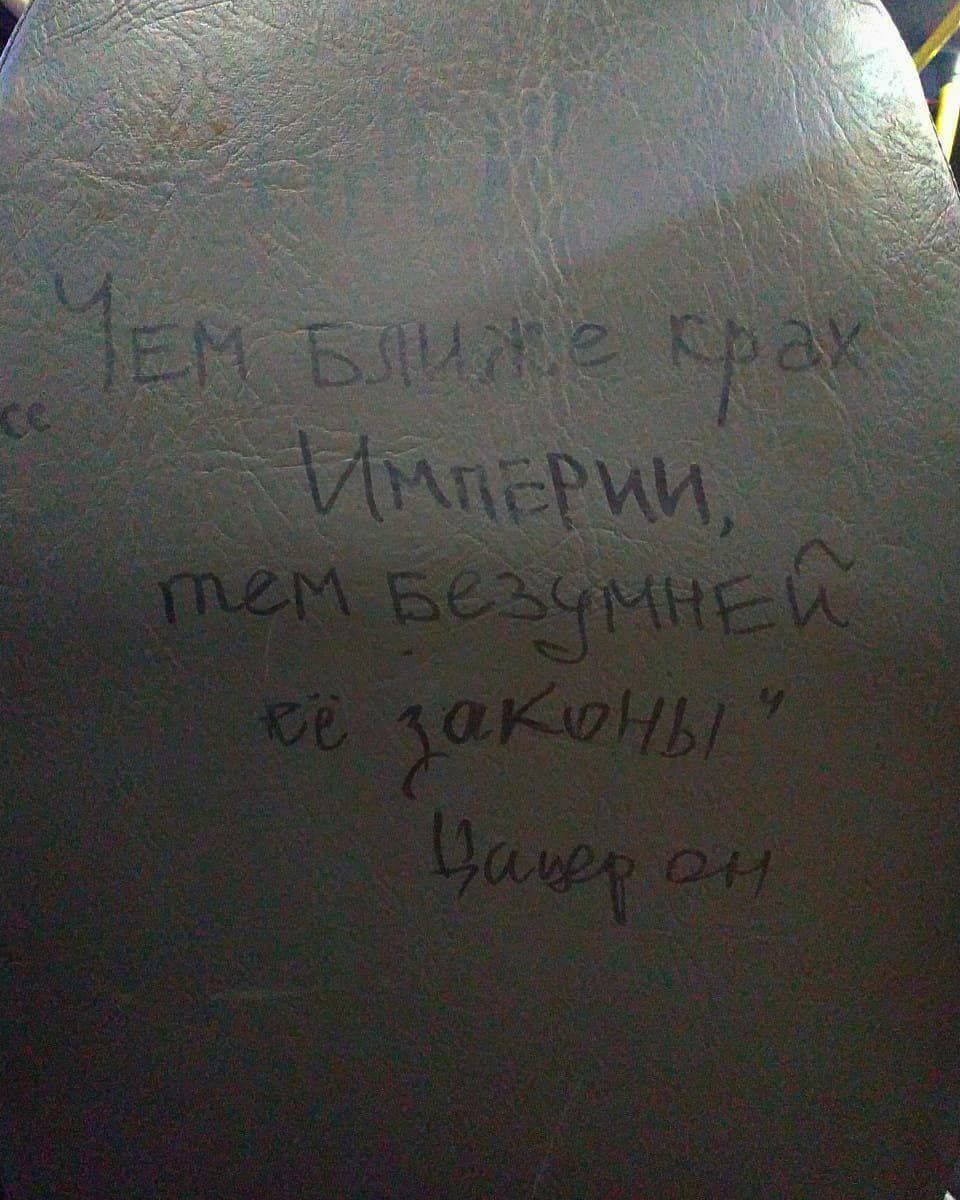 "Чем ближе крах
Империи,
тем безумней
её законы"
Цицерон